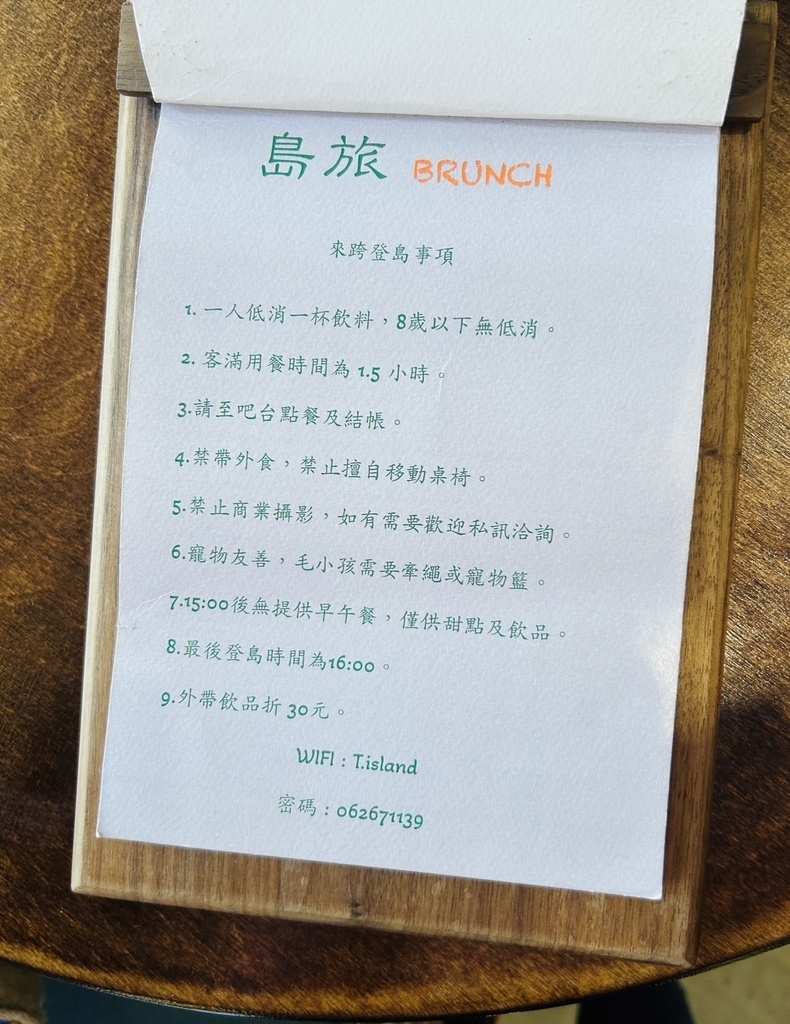 島旅 BRUNCH
來跨登島事項
1. 一人低消一杯飲料，8歲以下無低消。
2. 客滿用餐時間為 1.5 小時。
3.請至吧台點餐及結帳。
4.禁帶外食，禁止擅自移動桌椅。
5.禁止商業攝影，如有需要歡迎私訊洽詢。
6.寵物友善，毛小孩需要牽繩或寵物籃。
7.15:00後無提供早午餐，僅供甜點及飲品。
8.最後登島時間為16:00。
9.外帶飲品折 30元。
WIFI : T.island
密碼 : 062671139